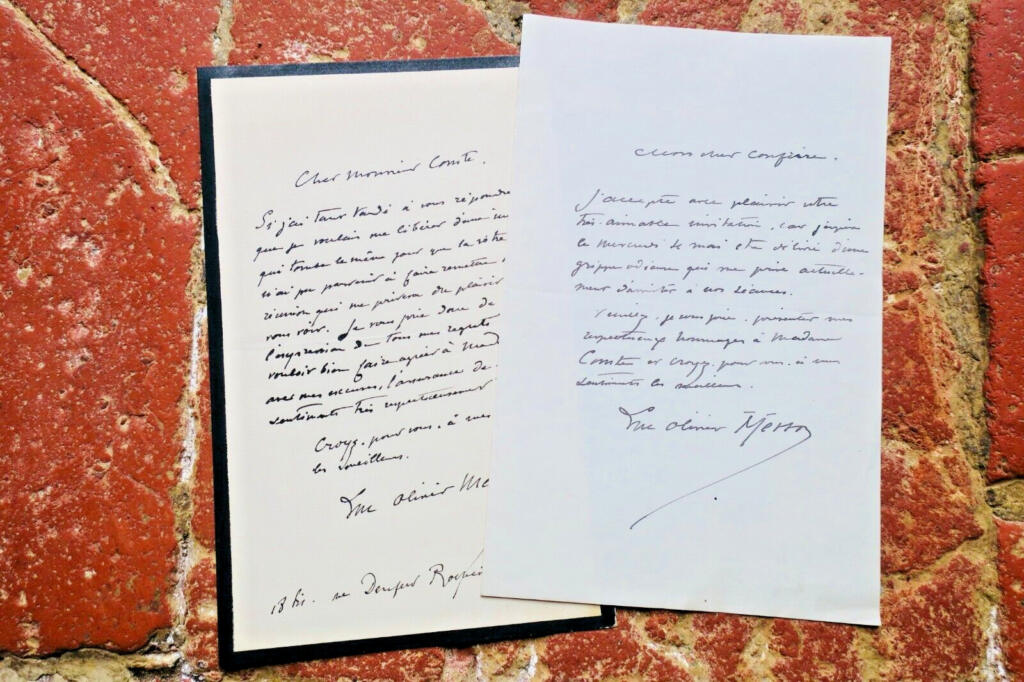 Cher Monsieur Comte.
Si j'ai tant tardé à vous répondre
que je voulais me libérer d'une in
qui tombe le même jour que la vôtre
n'ai pu parvenir à faire remettre,
réunion qui me privera du plaisir
vous voir. Je vous prie donc de
l'expression de tous mes regrets
vouloir bien faire agréer à Mad
avec mes excuses, l'assurance de
sentiments très respectueusement
Croyez, pour vous, à mes
les meilleurs.
Luc Olivier Me
13 bis. rue Denfert Roche
Mon cher Confrère.
J'accepte avec plaisir votre
très aimable invitation, car j'espère
le mercredi 4 mai être délivré d'une
grippe odieuse qui me prive actuelle-
ment d'assister à nos séances.
Veuillez, je vous prie, présenter mes
respectueux hommages à Madame
Comte et croyez, pour vous, à mes
sentiments les meilleurs.
Luc Olivier Merson